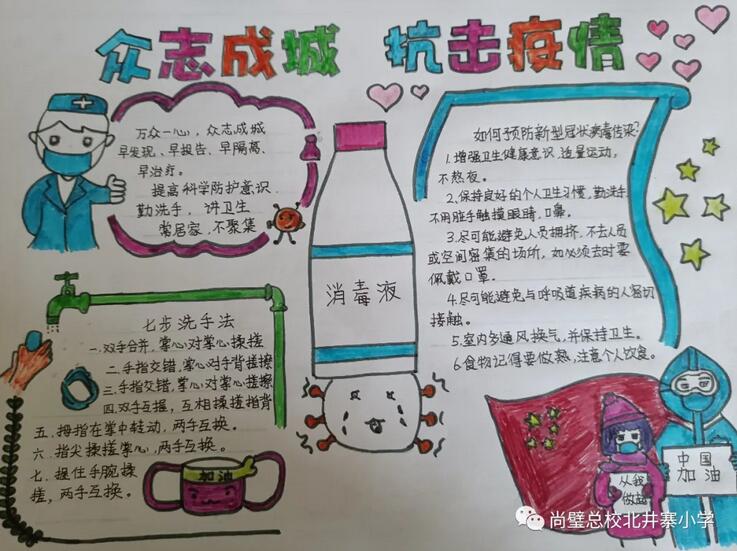 众志成城 抗击疫情
万众一心，众志成城
早发现、早报告、早隔离、
早治疗。
提高科学防护意识
勤洗手，讲卫生
常居家，不聚集
如何预防新型冠状病毒传染？
1.增强卫生健康意识，适量运动，
不熬夜。
2.保持良好的个人卫生习惯，勤洗手，
不用脏手触摸眼睛、口鼻。
3.尽可能避免人员拥挤，不去人员
或空间密集的场所，如必须去时要
佩戴口罩。
4.尽可能避免与呼吸道疾病的人密切
接触。
5.室内多通风换气，并保持卫生。
6.食物记得要做熟，注意个人饮食。
消毒液
七步洗手法
一.双手合并，掌心对掌心揉搓
二.手指交错，掌心对手背搓擦
三.手指交错，掌心对掌心搓擦
四.双手互握，互相揉搓指背
五.拇指在掌中转动，两手互换。
六.指尖揉搓掌心，两手互换。
七.握住手腕揉
搓，两手互换。
加油
从我
做起
中国
加油
尚璧总校北井寨小学